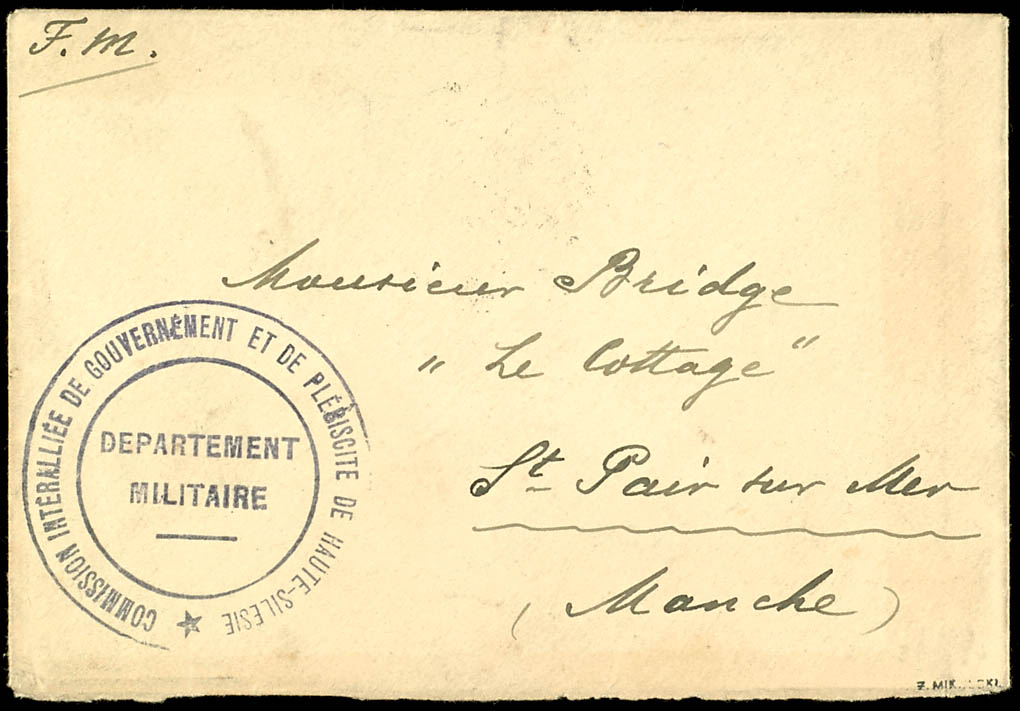 F. M.
Monsieur Bridge
" Le Cottage "
St Pair sur Mer
( Manche )
COMMISSION INTERALLIÉE DE GOUVERNEMENT ET DE PLÉBISCITE DE HAUTE-SILESIE
DEPARTEMENT
MILITAIRE
Z.